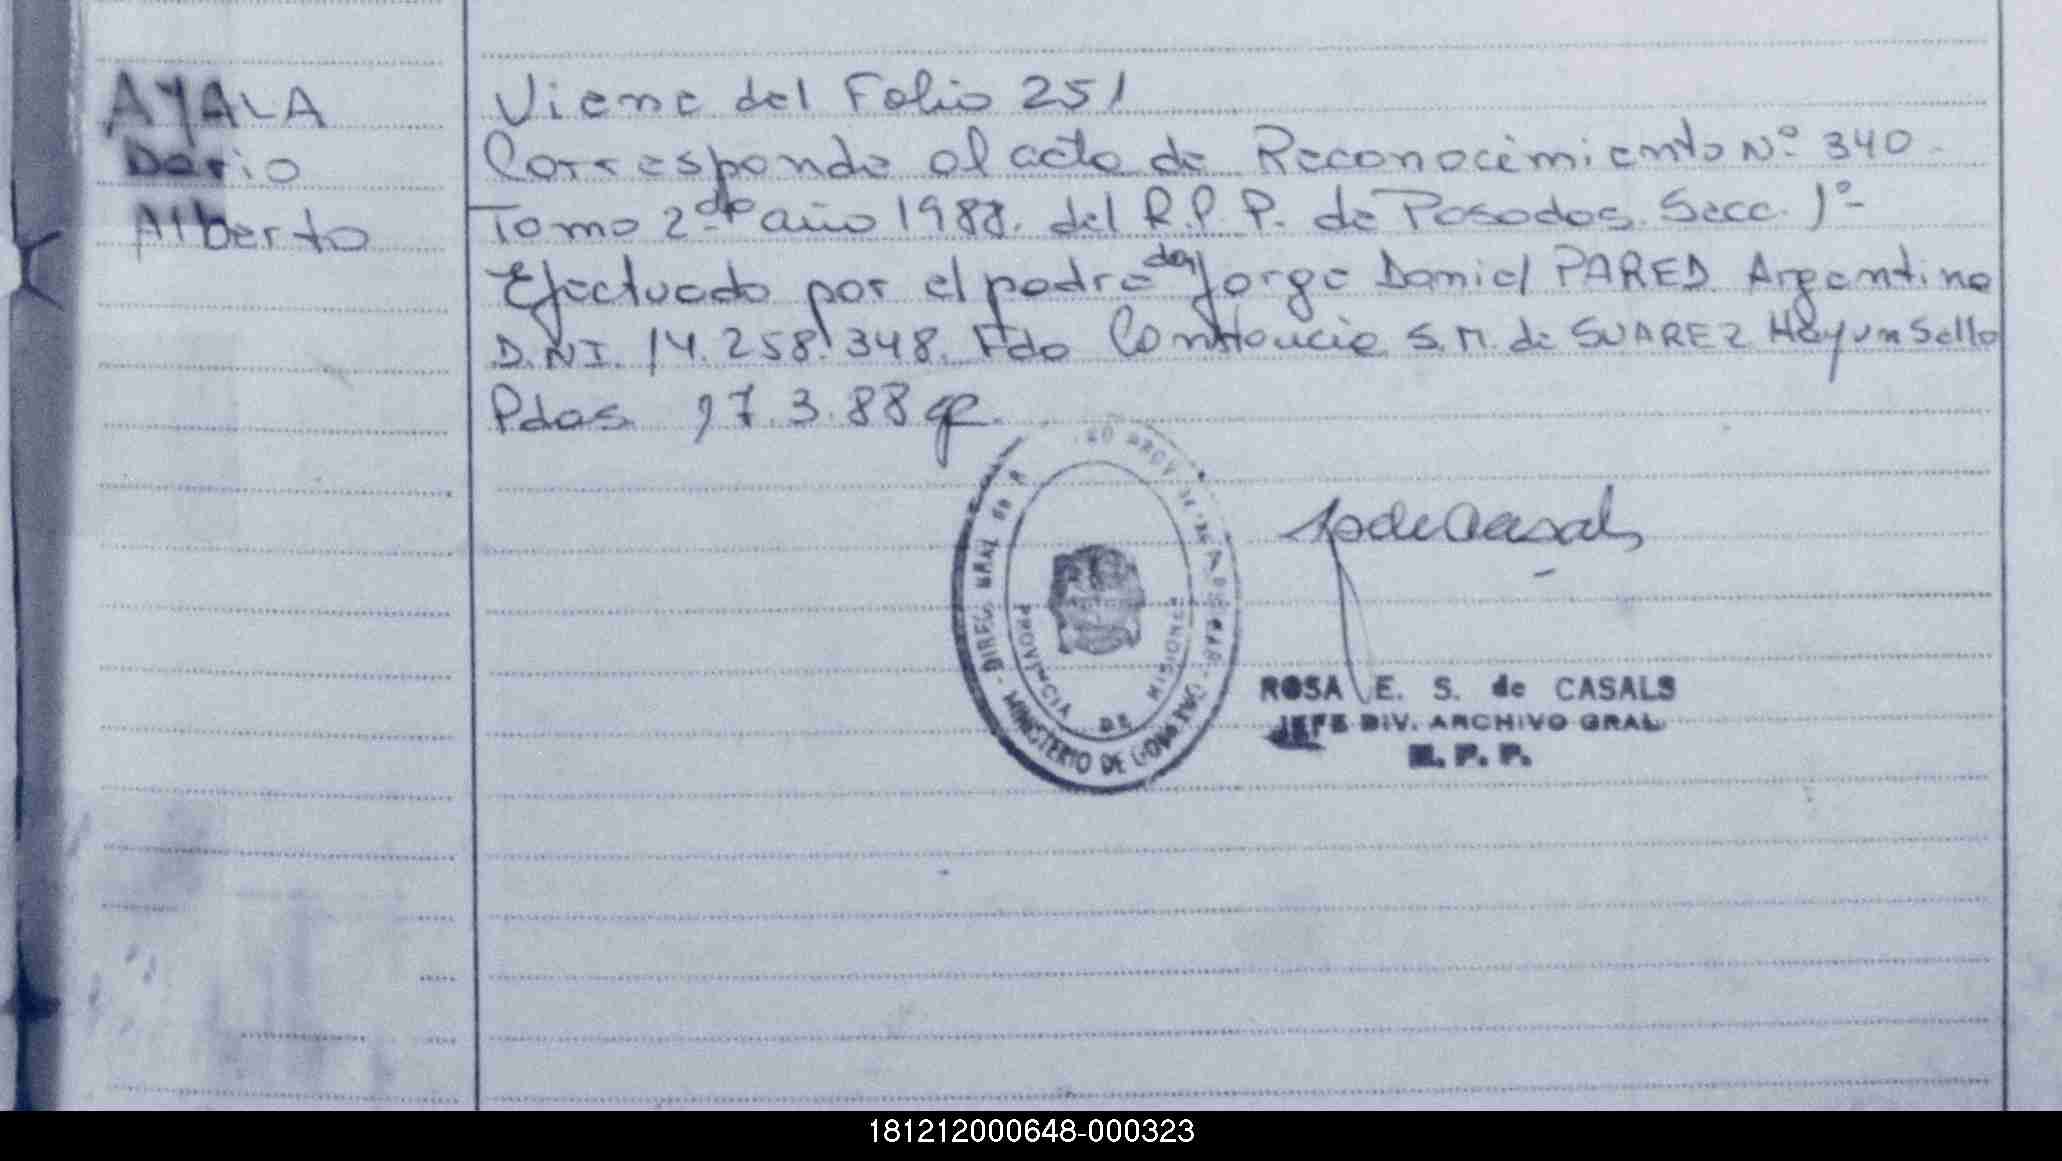 AYALA
Dario
Alberto
Viene del Folio 251
Corresponde al acta de Reconocimiento Nº 340.
Tomo 2do año 1988. del R.P.P. de Posadas. Secc. 1º
Efectuado por el padre don Jorge Daniel PARED Argentino
D.NI. 14.258.348. Fdo Constancia S.M. de SUAREZ Hay un Sello
Pdas. 17.3.88
PROVINCIA DE MISIONES
MINISTERIO DE GOBIERNO
ROSA E. S. de CASALS
JEFE DIV. ARCHIVO GRAL
R. P. P.
181212000648-000323